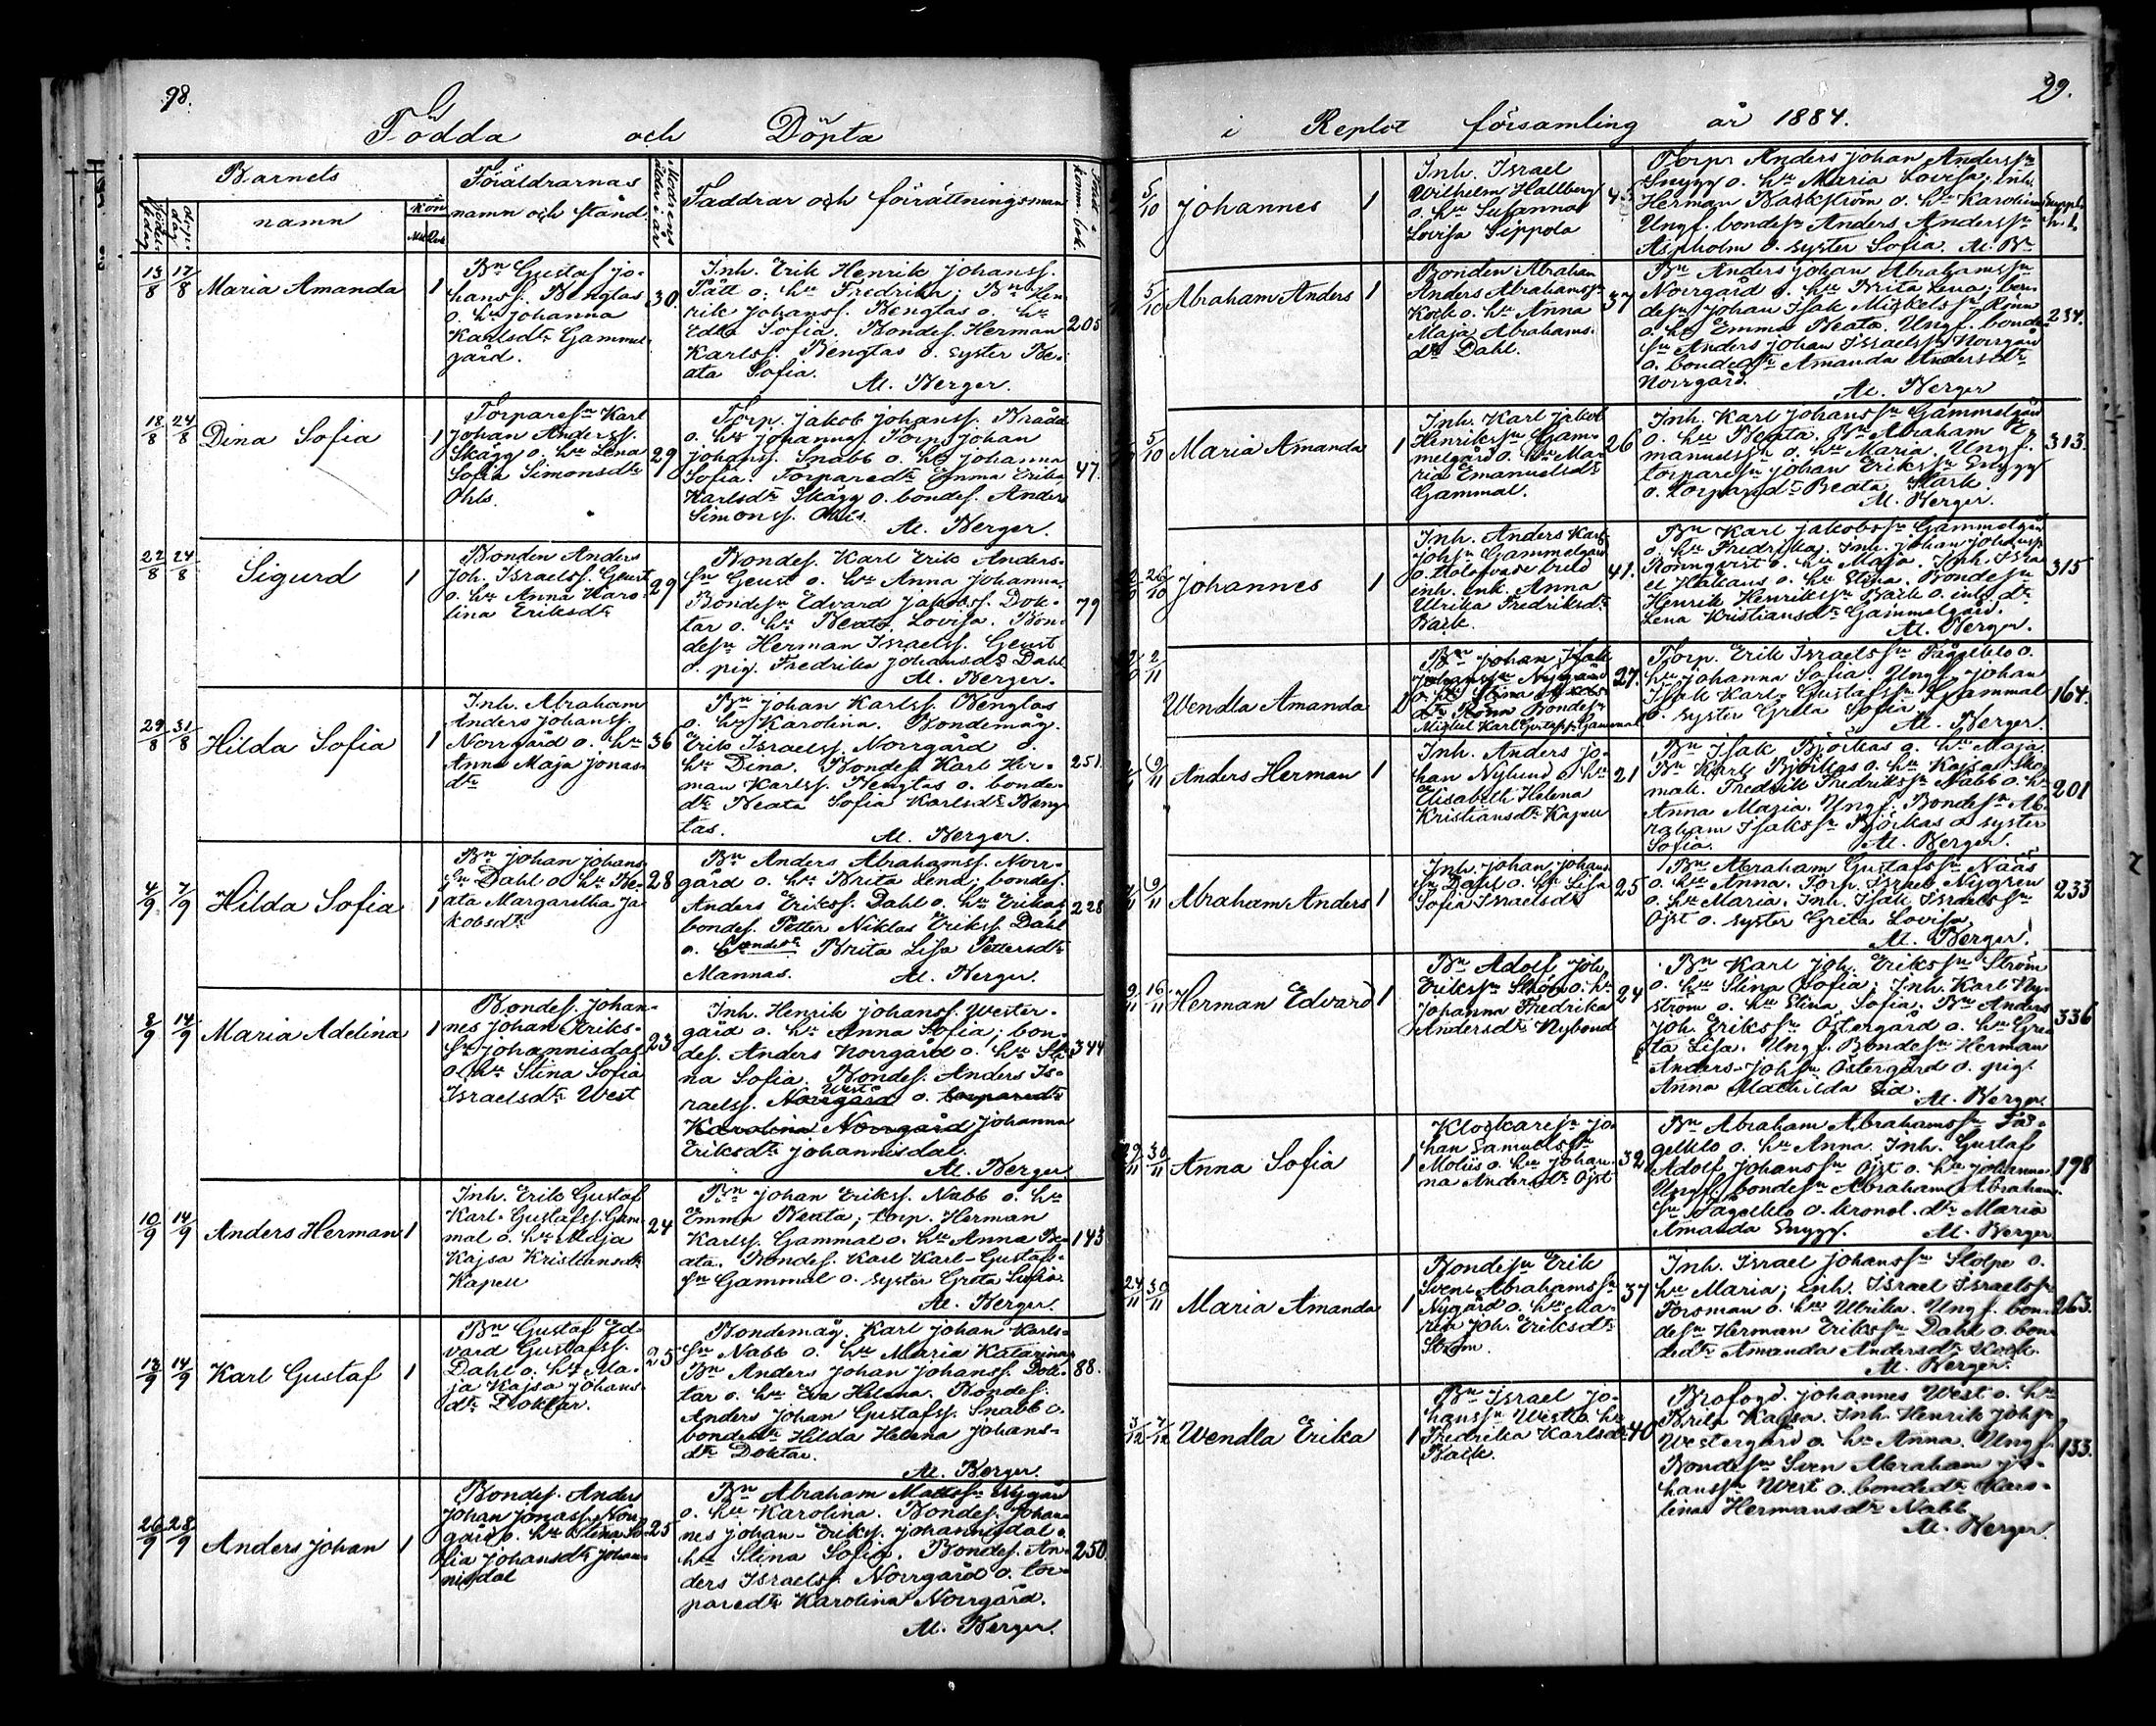 98.
Födda och Döpta
Barnets
Föräldrarnas
namn och stånd
Moderns ålder i år
Faddrar och förrättningsman
namn
Kön
13/8 17/8 Maria Amanda 1
Bn Gustaf Jo-
hanss. Benglas
o. hu Johanna
Karlsdr Gammel-
gård.
30.
Inh. Erik Henrik Johanss.
Pätt o. hu Fredrika; Bn Hen
rik Johanss. Benglas o. hu
Edla Sofia. Bondes. Herman
Karlss. Benglas o. syster Be-
ata Sofia.
M. Berger.
205
18/8 24/8 Dina Sofia 1
Torparesn Karl
Johan Anderss.
Skägg o. hu Lena
Sofia Simonsdr
Ohls.
29
Torp. Jakob Johanss. Bråda
o. hu Johanna, Torp. Johan
Johanss. Snabb o. hu Johanna
Sofia. Torparedr Emma Erika
Karlsdr Skägg o. bondes. Anders
Simonss. Ohls.
M. Berger.
47.
22/8 24/8 Sigurd 1
Bonden Anders
Joh. Israelss. Geust
o. hu Anna Karo-
lina Eriksdr
29
Bondes. Karl Erik Anders-
sn Geust o. hu Anna Johanna.
Bondesn Edvard Jakobss. Dok-
tar o. hu Beata Lovisa. Bon-
desn Herman Israelss. Geust
o. pig. Fredrika Johansdr Dahl
M. Berger.
79
29/8 31/8 Hilda Sofia 1
Inh. Abraham
Anders Johanss.
Norrgård o. hu
Anna Maja Jonas-
dr
36
Bn Johan Karlss. Benglas
o. hu Karolina. Bondemåg.
Erik Israelss. Norrgård o.
hu Dina. Bondes. Karl Her-
man Karlss. Benglas o. bonde-
dr Beata Sofia Karlsdr Beng
las.
M. Berger.
251.
4/9 7/9 Hilda Sofia 1
Bn Johan Johans-
sn Dahl o. hu Be-
ata Margaretha Ja-
kobsdr
28
Bn Anders Abrahamss. Norr-
gård o. hu Brita Lena; bondes.
Anders Erikss. Dahl o. hu Erika;
bondes. Petter Niklas Erikss. Dahl
o. bondedr Brita Lisa Pettersdr
Mannas.
M. Berger.
228
8/9 14/9 Maria Adelina 1
Bondes. Johan-
nes Johan Eriks-
sn Johannisdal
o. hu Stina Sofia
Israelsdr West
23
Inh. Henrik Johanss. Wester-
gård o. hu Anna Sofia; bon-
des. Anders Norrgård o. hu Sti-
na Sofia. Bondes. Anders Is-
raelss. Norrgård West o. torparedr
Karolina Norrgård Johanna
Eriksdr Johannisdal.
M. Berger
344
10/9 14/9 Anders Herman 1
Inh. Erik Gustaf
Karl-Gustafss. Gam-
mal o. hu Maja
Kajsa Kristiansdr
Kapell
24
Bn Johan Erikss. Nabb o. hu
Emma Beata; torp. Herman
Karlss. Gammal o. hu Anna Be-
ata. Bondes. Karl Karl-Gustafs-
sn Gammal o. syster Greta Sofia.
M. Berger.
143
13/9 14/9 Karl Gustaf 1
Bn Gustaf Ed-
vard Gustafss.
Dahl o. hu Ma-
ja Kajsa Johans-
dr Doktar.
25
Bondemåg. Karl Johan Karls-
sn Nabb o. hu Maria Katarina,
Bn Anders Johan Johanss. Dok-
tar o. hu Eva Helena. Bondes.
Anders Johan Gustafss. Snabb o.
bondedr Hilda Helena Johans-
dr Doktar.
M. Berger.
88.
26/9 28/9 Anders Johan 1
Bondes. Anders
Johan Jonass. Norr-
gård o. hu Stina So-
fia Johansdr Johan-
nisdal
25
Bn Abraham Mattssn Nygård
o. hu Karolina. Bondes. Johan-
nes Johan-Erikss. Johannisdal o.
hu Stina Sofia. Bondes. An-
ders Israelss. Norrgård o. tor-
paredr Karolina Norrgård.
M. Berger.
250.
99.
i Replot församling år 1884.
5/10 Johannes 1
Inh. Israel
Wilhelm Hallberg
o. hu Susanna
Lovisa Sippola
43
Torpr Anders Johan Anderssn
Snygg o. hu Maria Lovisa; inh.
Herman Backström o. hu Karolina
Ungf. bondesn Anders Anderssn
Aspholm o. syster Sofia. M. Br
5/10 Abraham Anders 1
Bonden Abraham
Anders Abrahamssn
Kock o. hu Anna
Maja Abrahams-
dr Dahl.
37
Bn Anders Johan Abrahamssn
Norrgård o. hu Brita Lena; bon-
desn Johan Isak Mickelssn Röun
o. hu Emma Beata. Ungf. bonde-
sn Anders Johan Israelssn Norrgård
o. bondedr Amanda Andersdr
Norrgård.
M. Berger
234.
5/10 Maria Amanda 1
Inh. Karl Jakob
Henrikssn Gam-
melgård o. hu Ma-
ria Emanuelsdr
Gammal.
26
Inh. Karl Johanssn Gammelgård
o. hu Beata. Bn Abraham E-
manuelssn o. hu Maria. Ungf.
torparesn Johan Erikssn Snygg
o. torparedr Beata Stark.
M. Berger.
313.
26/10 Johannes 1
Inh. Anders Karl
Johssn Gammelgård
o. trolofvade brud
inh. enk. Anna
Ulrika Fredriksdr
Back.
41.
Bn Karl Jakobssn Gammelgård
o. hu Fredrika; Inh. Johan Johanssn
Rönnqvist o. hu Maja. Inh. Isra-
el Håkans o. hu Stina. Bondesn
Henrik Henrikssn Back o. inh. dr
Lena Kristiansdr Gammelgård.
M. Berger.
315
2/11 Wendla Amanda 1
Bn Johan Isak
27.
Mickel Karl Gustafss. Gammal
Torp. Erik Israelssn Fågelklo o.
hu Johanna Sofia. Ungf. Johan
Isak Karl-Gustafssn Gammal
o. syster Greta Sofia
M. Berger.
164.
9/11 Anders Herman 1
Inh. Anders Jo-
han Nylund o. hu
Elisabeth Helena
Kristiansdr Kapell
21
Bn Isak Björkas o. hu Maja.
Bn Karl Björkas o. hu Kajsa. Sko-
mak. Fredrik Fredrikssn Nabb o. hu
Anna Maria. Ungf. Bondesn Ab-
raham Isakssn Björkas o. syster
Sofia.
M. Berger.
201
9/11 Abraham Anders 1
Inh. Johan Johans-
sn Dahl o. hu Lisa
Sofia Israelsdr
25
Bn Abraham Gustafssn Nääs
o. hu Anna. Torp. Israel Nygren
o. hu Maria. Inh. Isak Israelssn
Öjst o. syster Greta Lovisa.
M. Berger.
233
9/11 16/11 Herman Edvard 1
Bn Adolf Joh.
Erikssn Ström o. hu
Johanna Fredrika
Andersdr Nybond
24
Bn Karl Joh. Erikssn Ström
o. hu Stina Sofia; Inh. Karl Ny-
ström o. hu Stina Sofia. Bn Anders
Joh. Erikssn Östergård o. hu Gre-
ta Lisa. Ungf. Bondesn Herman
Anders-Johssn Östergård o. pig.
Anna Mathilda
M. Berger
336
29/11 30/11 Anna Sofia 1
Klockaresn Jo-
han Samuelssn
Molius o. hu Johan-
na Andersdr Öjst
32
Bn Abraham Abrahamssn Få-
gelklo o. hu Anna. Inh. Gustaf
Adolf Johanssn Öjst o. hu Johanna.
Ungf. bondesn Abraham Abraham-
sn Fågelklo o. kronol. dr Maria
Amanda Snygg.
M. Berger
198
24/11 30/11 Maria Amanda 1
Bondesn Erik
Sven-Abrahamssn
Nygård o. hu Ma-
ria Joh. Eriksdr
Ström.
37
Inh. Israel Johanssn Stolpe o.
hu Maria; inh. Israel Israelssn
Forsman o. hu Ulrika. Ungf. bon-
desn Herman Erikssn Dahl o. bon-
dedr Amanda Andersdr Kock.
M. Berger.
263.
3/12 7/12 Wendla Erika 1
Bn Israel Jo-
hanssn West o. hu
Fredrika Karlsdr
Back.
40
Brofogd. Johannes West o. hu
Brita Kajsa. Inh. Henrik Johssn
Westergård o. hu Anna. Ungf.
Bondesn Sven Abraham Jo-
hanssn West o. bondedr Karo-
lina Hermansdr Nabb.
M. Berger.
133.